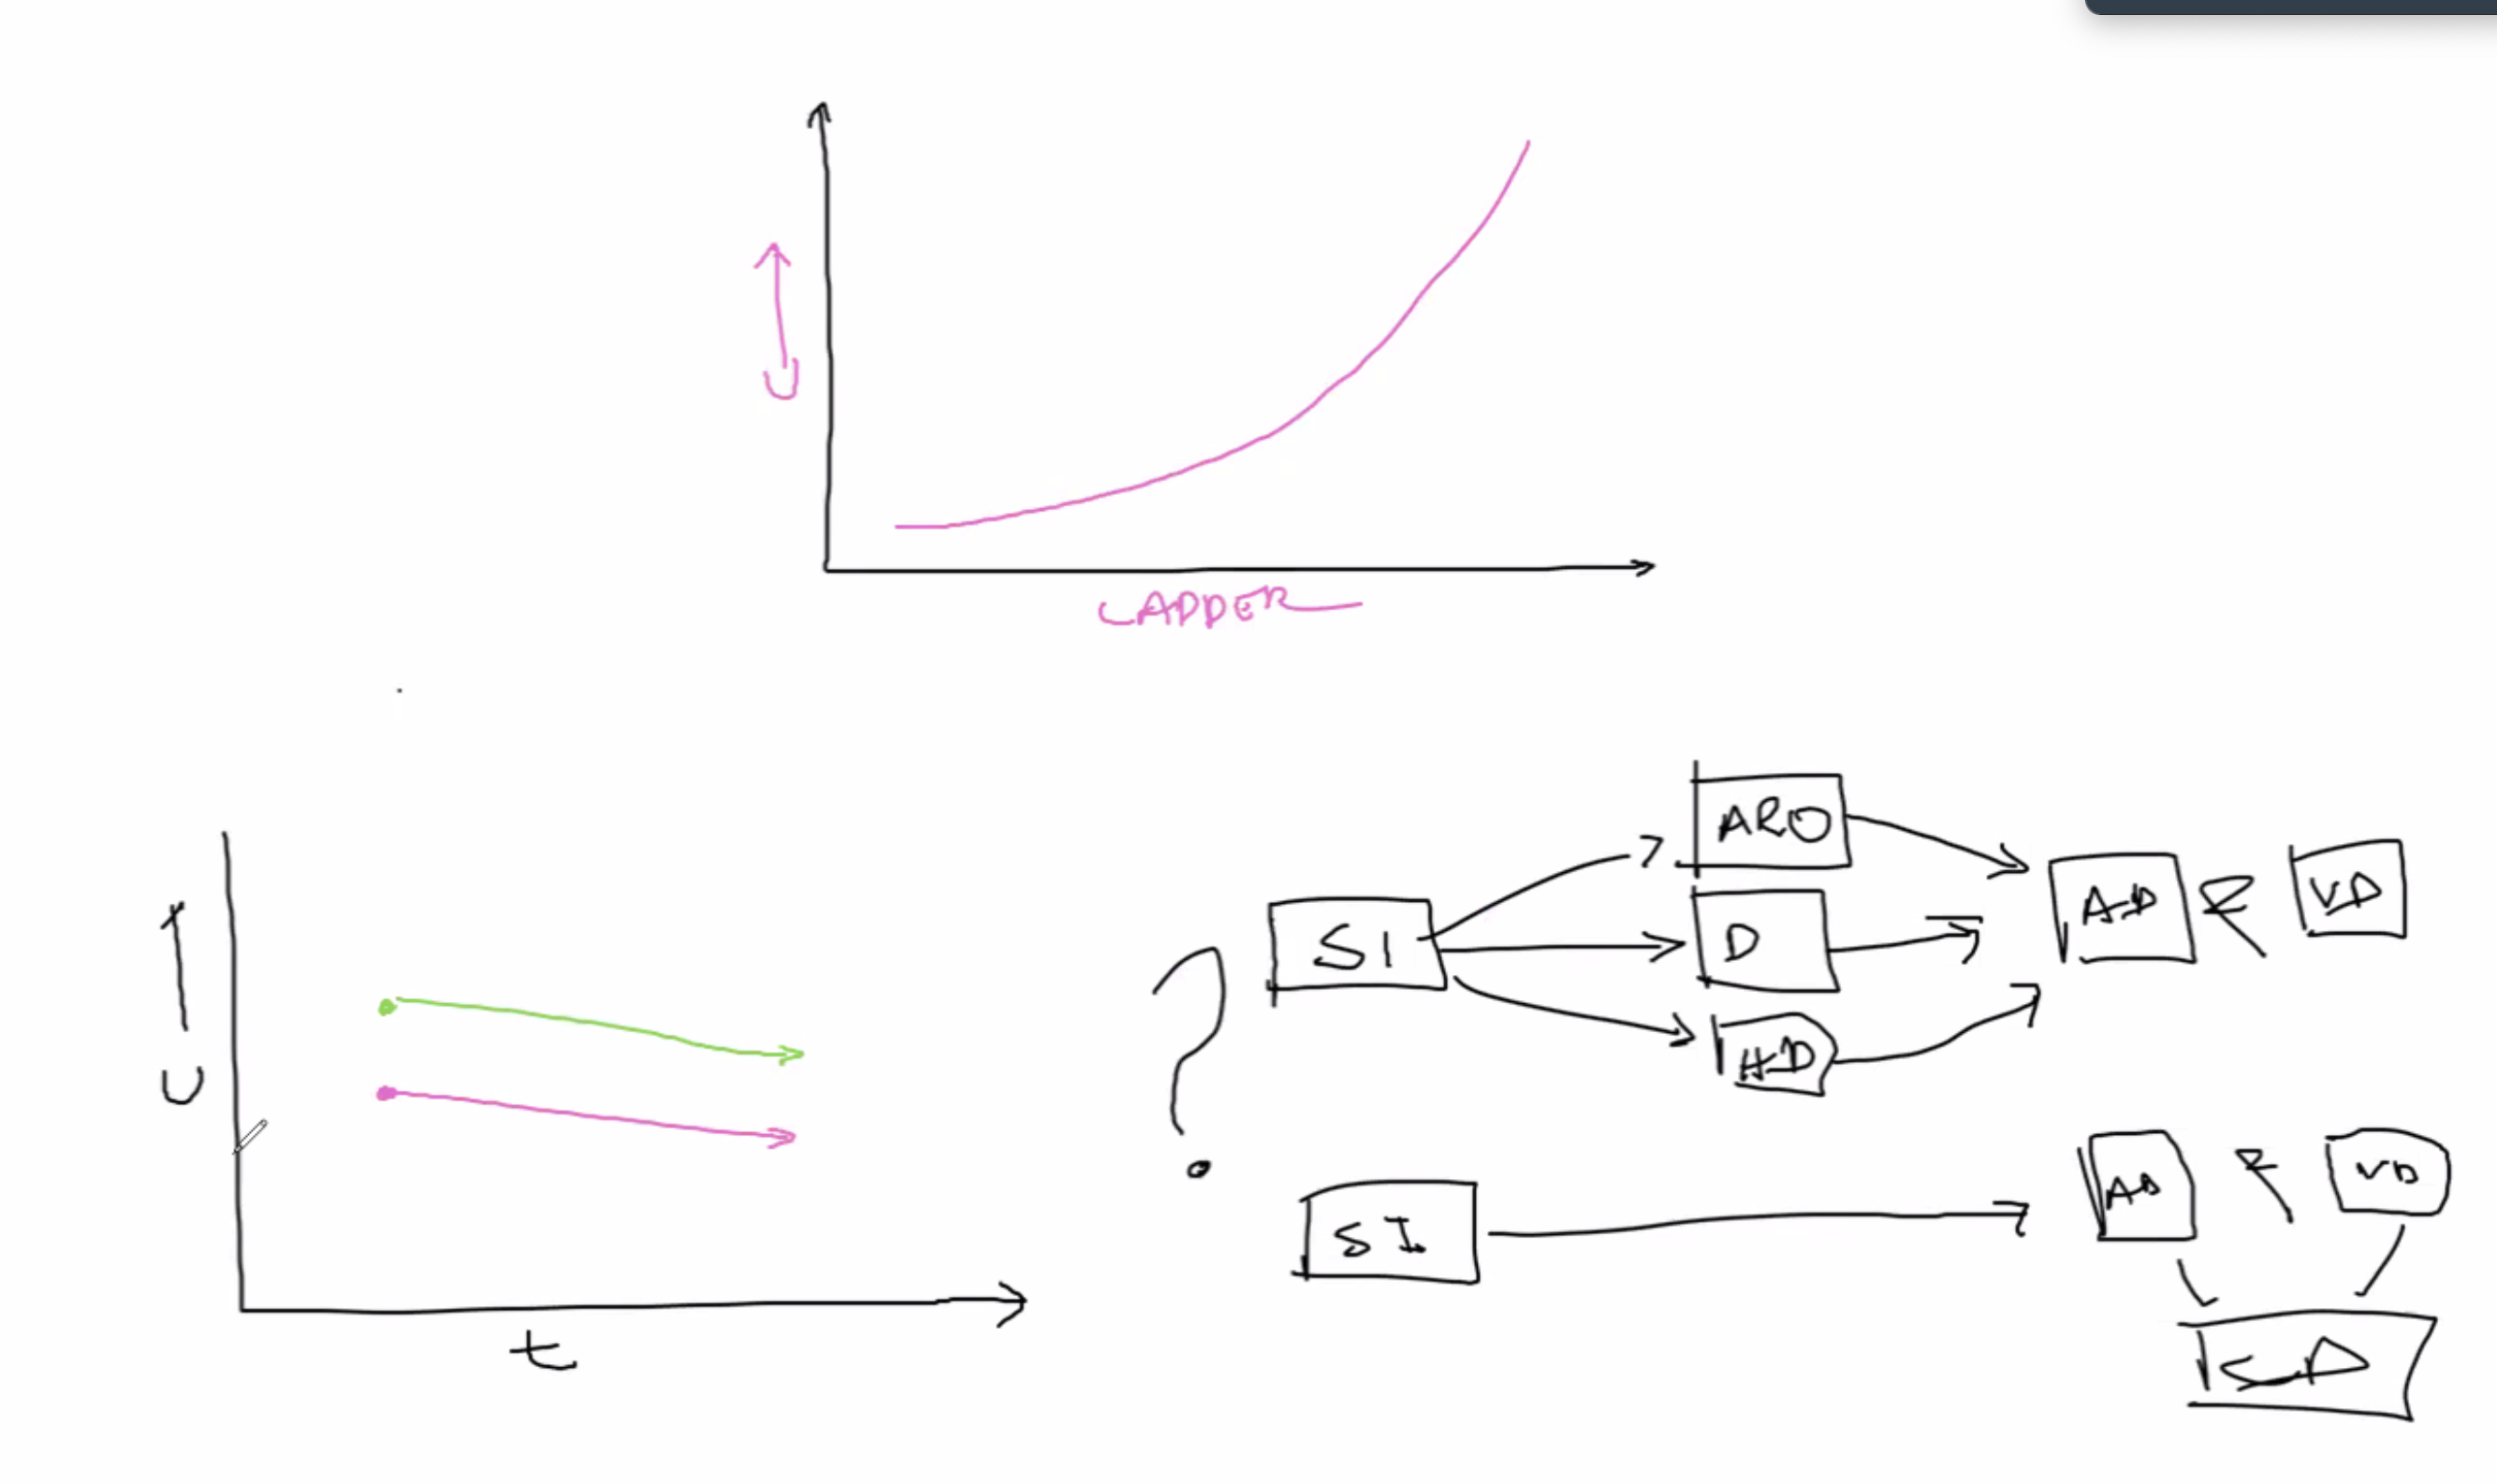 U
LADDER
U
t
SI
ARO
D
HD
AD
VD
SI
AD
VD